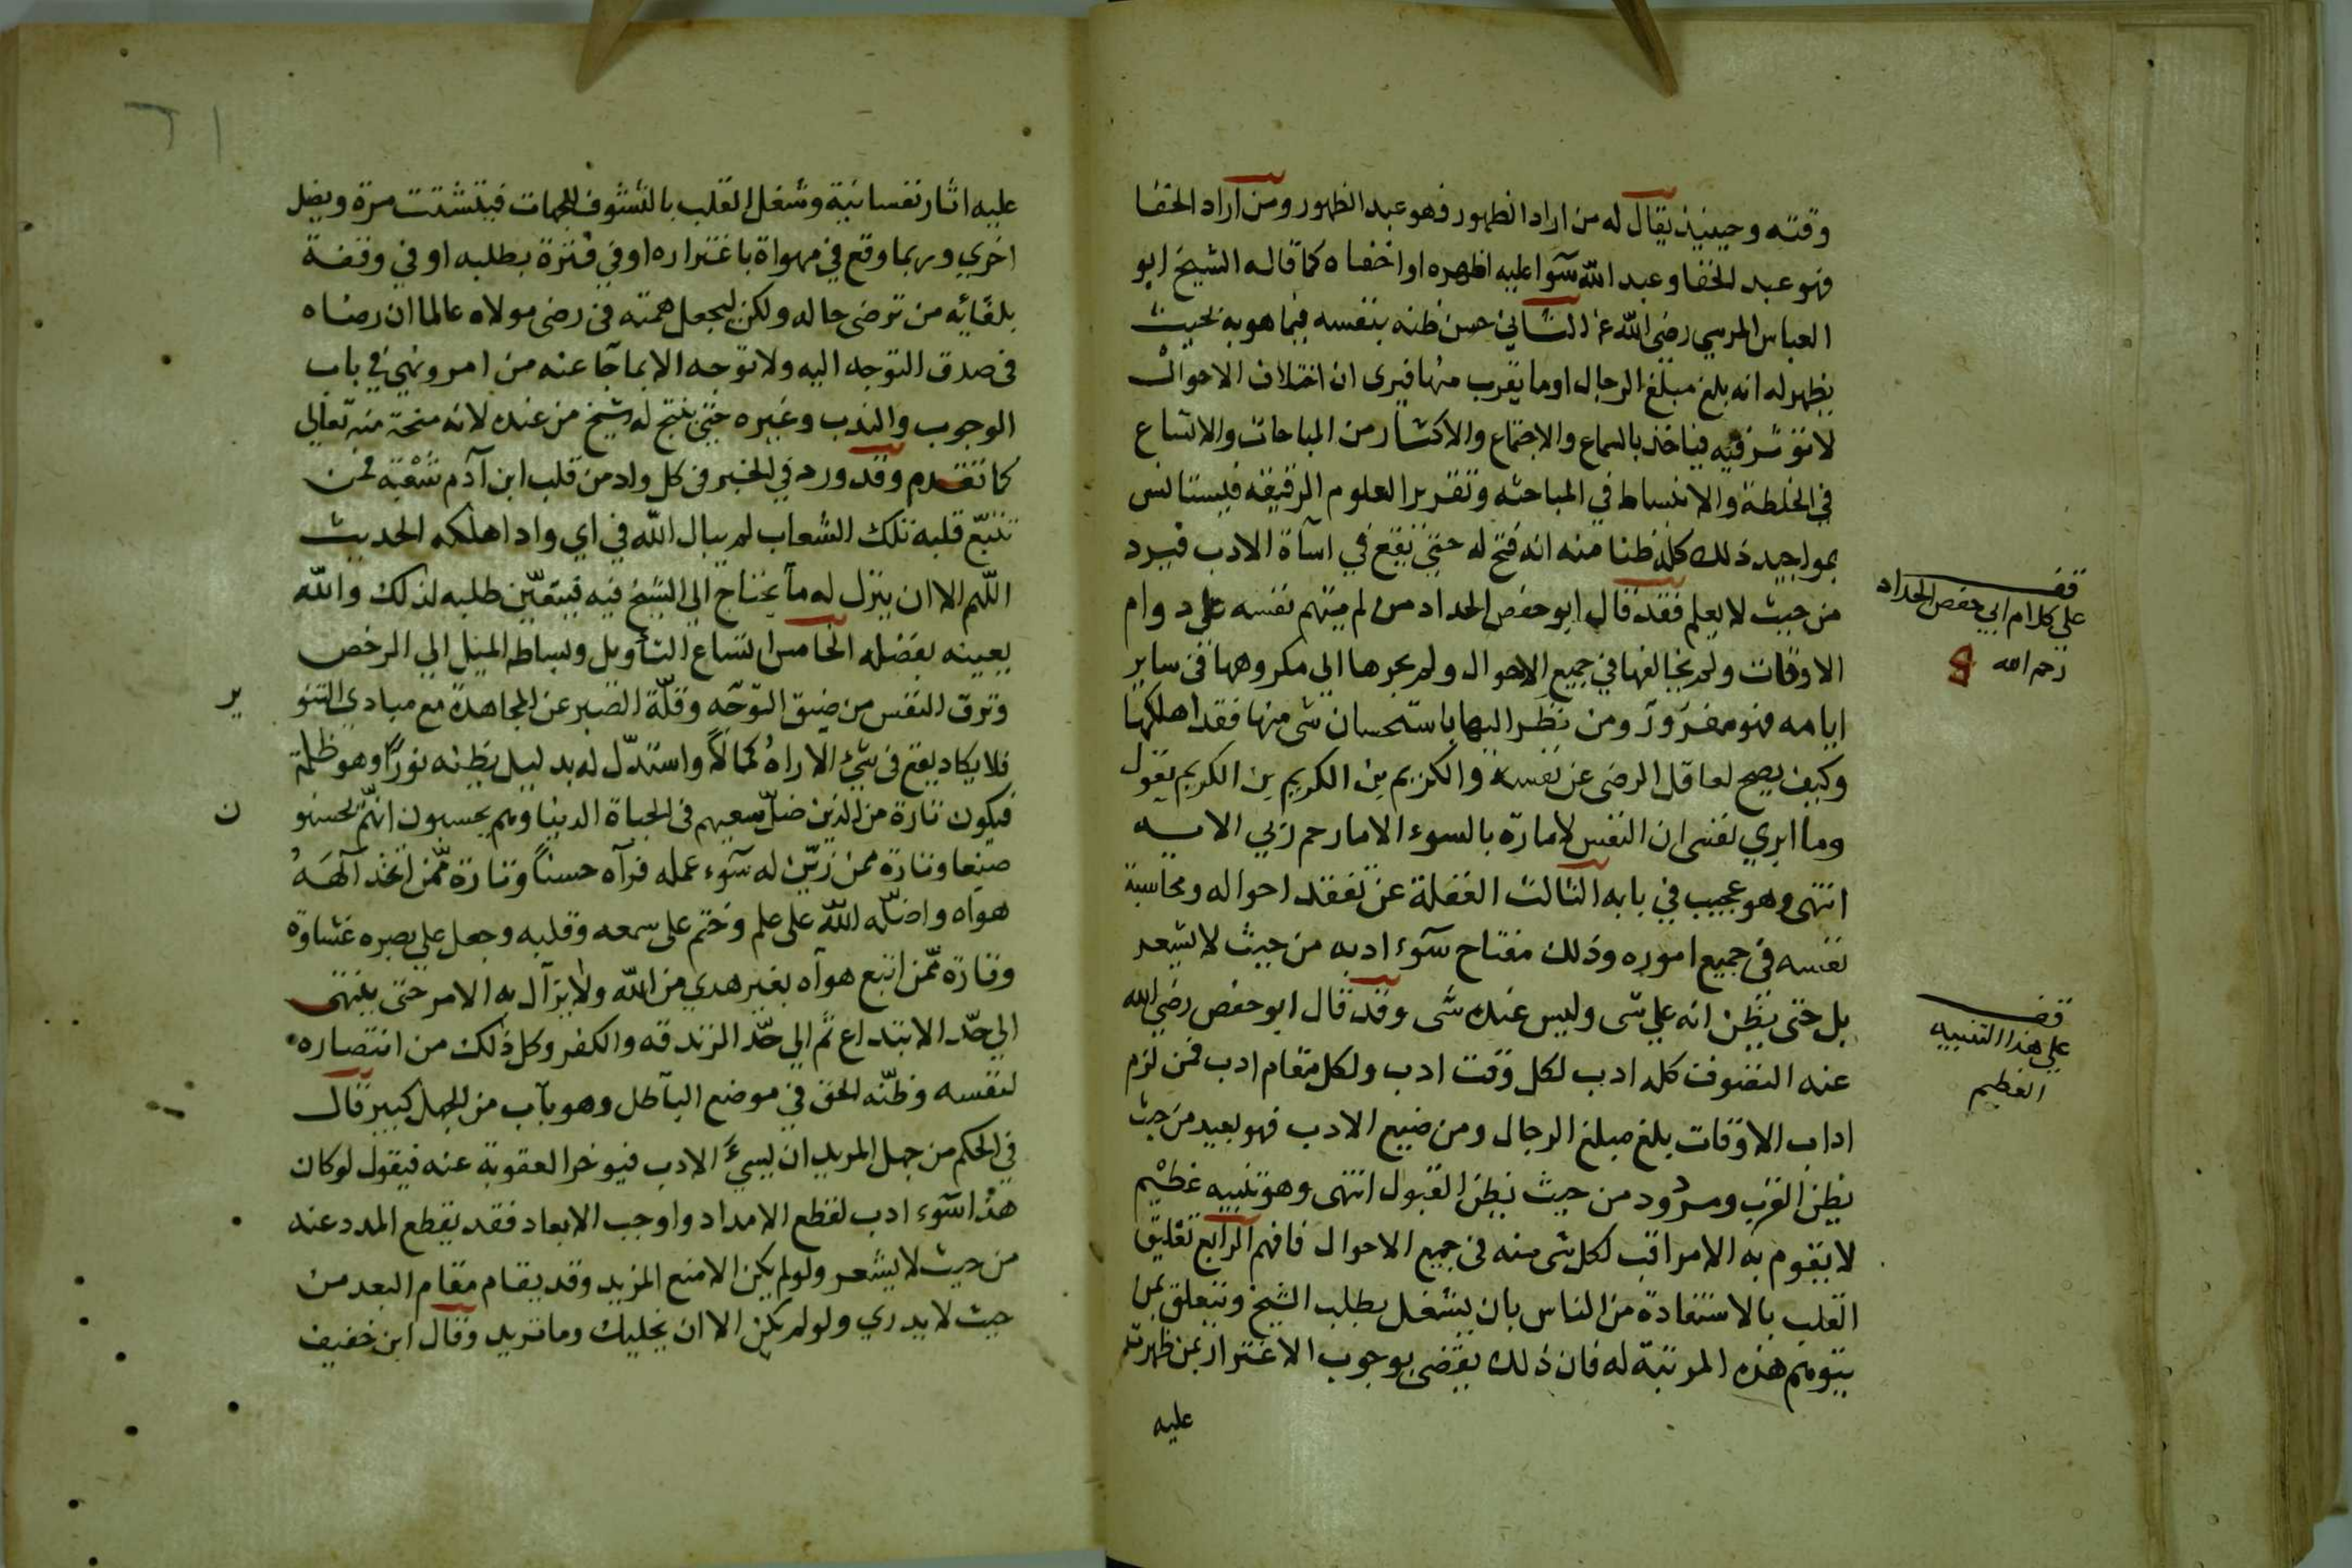 وقته وحينيذ يقال له من اراد الظهور فهو عبد الظهور ومن اراد الخفا
فهو عبد الخفا وعبد الله سوا عليه اظهره او اخفاه كما قاله الشيخ ابو
العباس المرسي رضي الله عنه الثاني حسن ظنه بنفسه فيما هو به بحيث
يظهر له انه بلغ مبلغ الرجال او ما يقرب منها فيرى ان اختلاف الاحوال
لا توثر فيه فياخذ بالسماع والاجتماع والاكثار من المباحات والاتساع
في الخلطة والانبساط في المباحثه وتقرير العلوم الرقيقه فيستانس
بمواجيد ذلك كله ظنا منه انه فتح له حتى يقع في اساة الادب فيرد
من حيث لا يعلم فقد قال ابو حفص الحداد من لم يتهم نفسه على دوام
الاوقات ولم يخالفها في جميع الاحوال ولم يجرها الى مكروهها في ساير
ايامه فهو مغرور ومن نظر اليها باستحسان شي منها فقد اهلكها
وكيف يصح لعاقل الرضى عن نفسه والكريم بن الكريم بن الكريم يقول
وما ابري نفسى ان النفس لامارة بالسوء الا مارحم ربي الايه
انتهى وهو عجيب في بابه الثالث الغفلة عن تفقد احواله ومحاسبة
نفسه في جميع اموره وذلك مفتاح سوء ادبه من حيث لا يشعر
بل حتى يظن انه على شى وليس عنده شى وقد قال ابو حفص رضي الله
عنه التصوف كله ادب لكل وقت ادب ولكل مقام ادب فمن لزم
اداب الاوقات بلغ مبلغ الرجال ومن ضيع الادب فهو بعيد من حيث
يظن القرب ومردود من حيث يظن القبول انتهى وهو تنبيه عظيم
لا يقوم به الا مراقب لكل شى منه في جميع الاحوال فافهم الرابع تعليق
القلب بالاستفادة من الناس بان يشتغل بطلب الشيخ ويتعلق بمن
يتوهم هذه المرتبة له فان ذلك يقضى بوجوب الاغترار بمن ظهرت
عليه
قف
على كلام ابي حفص الحداد
رحمه الله
قف
على هذا التنبيه
العظيم
عليه اثار نفسانية وشغل القلب بالتشوف للجهات فيتشتت مرة ويضل
اخري وربما وقع في مهواة باغتراره او في فترة بطلبه او في وقفة
بلقائه من ترضى حاله ولكن ليجعل همته في رضى مولاه عالما ان رضاه
في صدق التوجه اليه ولا توجه الا بما جا عنه من امر ونهي في باب
الوجوب والندب وغيره حتى يفتح له بشيخ من عنده لانه منحة منه تعالى
كما تقدم وقد ورد في الخبر في كل واد من قلب ابن آدم شعبة فمن
تتبع قلبه تلك الشعاب لم يبال الله في اي واد اهلكه الحديث
اللهم الا ان ينزل له ما يحتاج الى الشيخ فيه فيتعين طلبه لذلك والله
يعينه بفضله الخامس اتساع التأويل وبساط الميل الى الرخص
وترق النفس من ضيق التوجه وقلة الصبر عن المجاهدة مع مبادي التنو
ير
فلا يكاد يقع في شئ الا راه كمالا واستدل له بدليل يظنه نورا وهو ظلمة
فيكون تارة من الذين ضل سعيهم في الحياة الدنيا وهم يحسبون انهم يحسنو
ن
صنعا وتارة ممن زين له سوء عمله فرآه حسنا وتارة ممن اتخذ آلهه
هواه واضله الله على علم وختم على سمعه وقلبه وجعل على بصره غشاوة
وتارة ممن اتبع هواه بغير هدي من الله ولا يزال به الامر حتى ينتهى
الى حد الابتداع ثم الى حد الزندقه والكفر وكل ذلك من انتصاره
لنفسه وظنه الحق في موضع الباطل وهو باب من الجهل كبير قال
في الحكم من جهل المريد ان يسيء الادب فيوخر العقوبة عنه فيقول لو كان
هذا سوء ادب لقطع الامداد واوجب الابعاد فقد يقطع المدد عنه
من حيث لا يشعر ولو لم يكن الا منع المزيد وقد يقام مقام البعد من
حيث لا يدري ولو لم يكن الا ان يخليك وما تريد وقال ابن خفيف